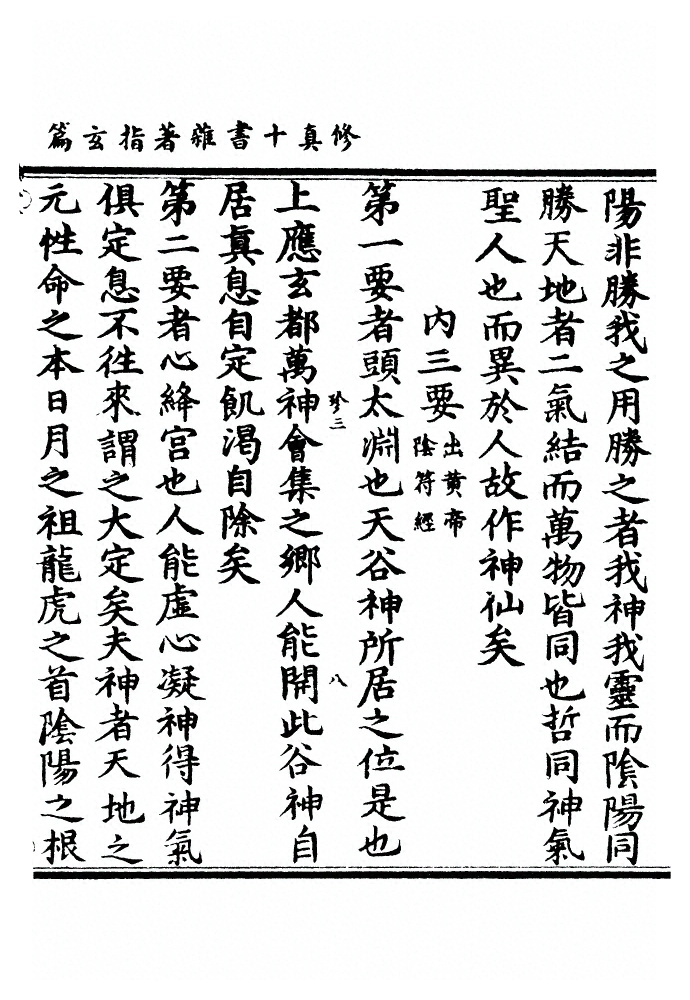 修真十書雜著指玄篇
陽非勝我之用勝之者我神我靈而陰陽同
勝天地者二氣結而萬物皆同也哲同神氣
聖人也而異於人故作神仙矣
内三要出黄帝
陰符經
第一要者頭太淵也天谷神所居之位是也
珍三
八
上應玄都萬神會集之鄉人能開此谷神自
居真息自定飢渴自除矣
第二要者心絳宮也人能虛心凝神得神氣
俱定息不徃來謂之大定矣夫神者天地之
元性命之本日月之祖龍虎之首陰陽之根